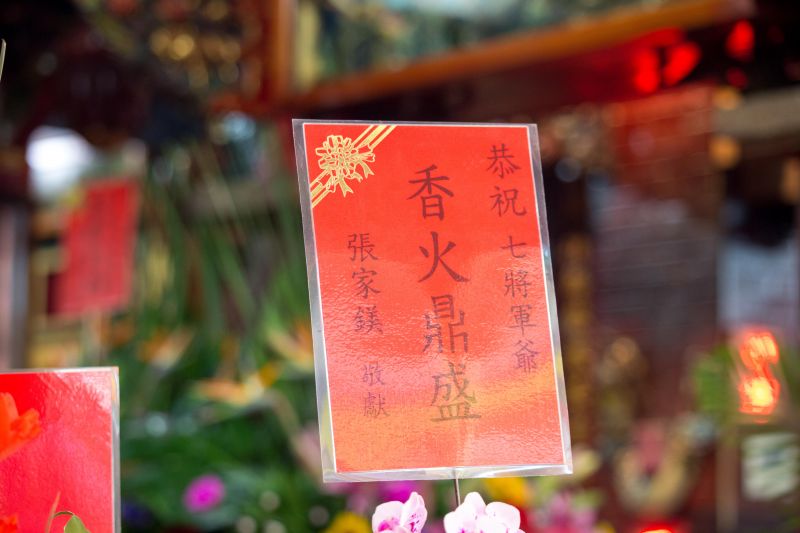 恭祝 七將軍爺
香火鼎盛
張家鎂 敬獻